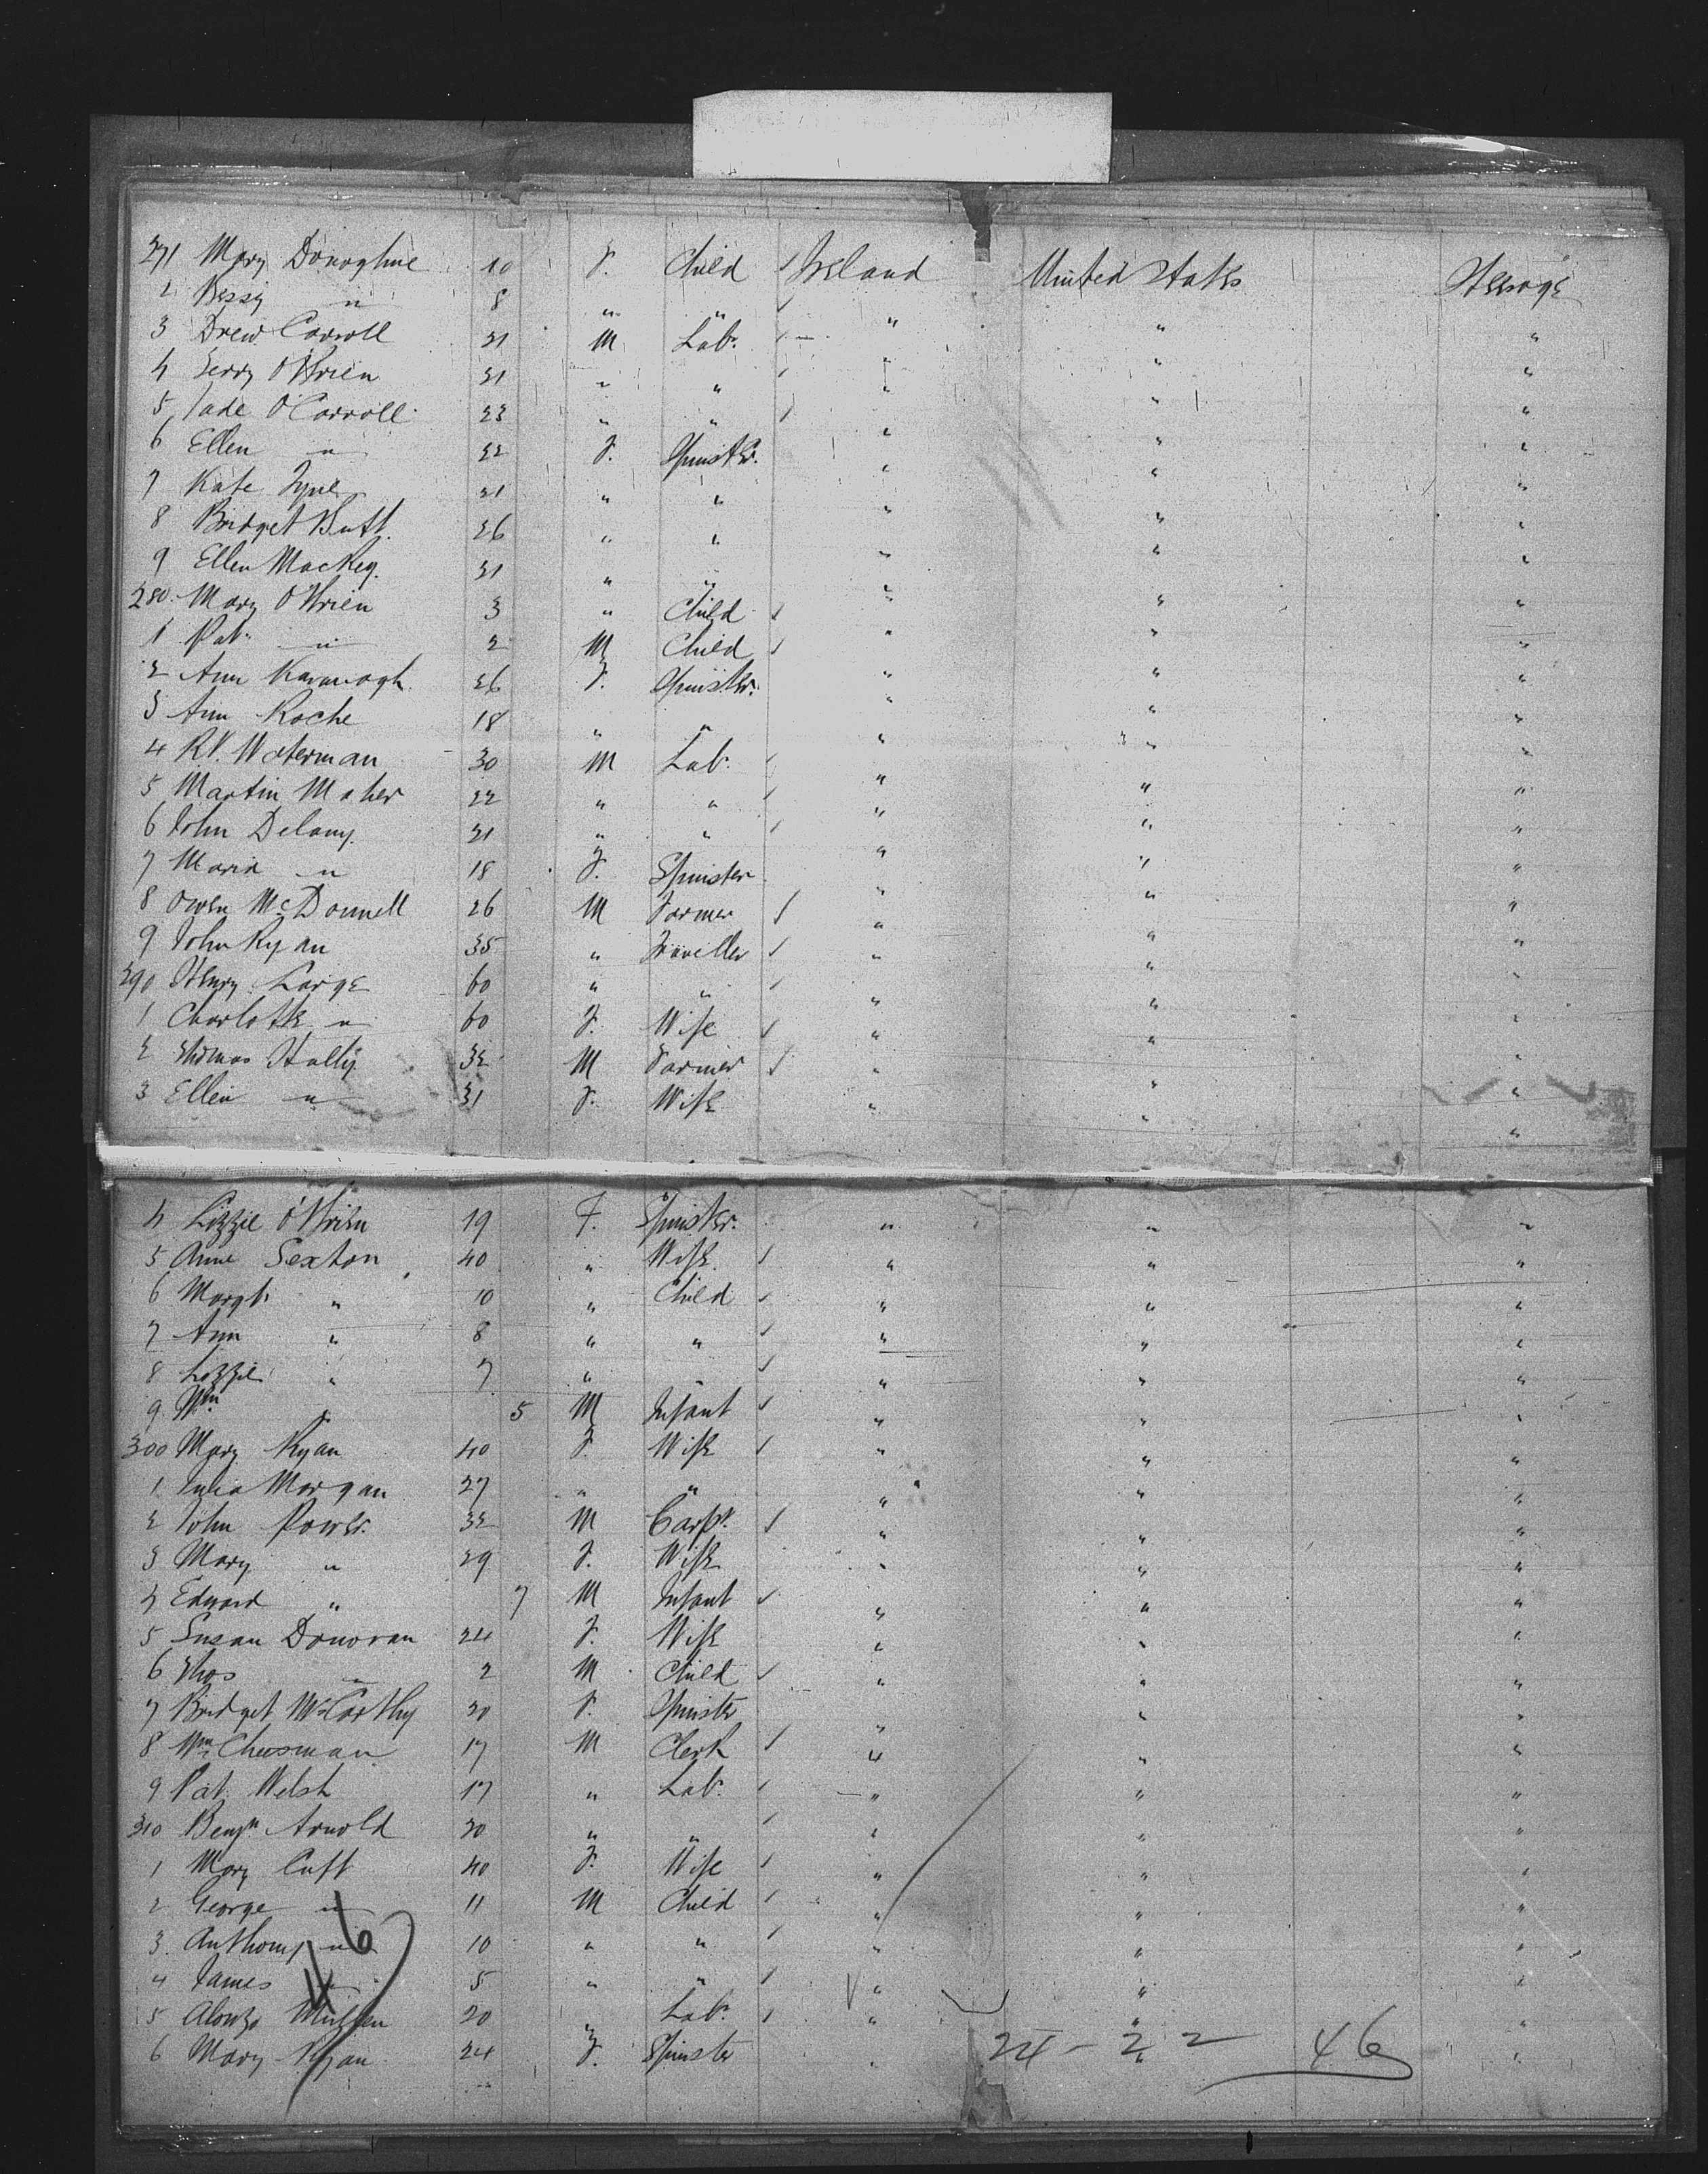 271 Mary Donoghue 10 F. Child Ireland United States Steerage
2 Bessy " 8 " " " " "
3 Drew Carroll 21 M Lab. " " "
4 Jerry O'Brien 21 " " " " "
5 Jade O'Carroll 23 " " " " "
6 Ellen " 22 F. Spinster. " " "
7 Kate 21 " " " " "
8 Bridget Butt. 26 " " " " "
9 Ellen Mackey. 21 " " " " "
280. Mary O'Brien 3 " Child " " "
1 Pat. " 2 M Child " " "
2 Ann Kavanagh 26 F. Spinster. " " "
3 Ann Roche 18 " " " " "
4 R.V. Waterman 30 M Lab. " " "
5 Martin Maher 22 " " " " "
6 John Delany. 21 " " " " "
7 Maria " 18 F. Spinster " " "
8 Owen McDonnell 26 M Farmer " " "
9 John Ryan 35 " Traveller " " "
290 Henry Large 60 " " " " "
1 Charlotte " 60 F. Wife " " "
2 Thomas Hally 32 M Farmer " " "
3 Ellen " 31 F. Wife " " "
4 Lizzie O'Brien 19 F. Spinster. " " "
5 Anne Sexton 40 " Wife. " " "
6 Margt. " 10 " Child " " "
7 Ann " 8 " " " " "
8 Lizzie " 7 " " " " "
9 Wm " 5 M Infant " " "
300 Mary Ryan 40 F. Wife " " "
1 Julia Morgan 27 " " " " "
2 John Power. 32 M Carpr. " " "
3 Mary " 29 F. Wife " " "
4 Edward " 7 M Infant " " "
5 Susan Donovan 24 F. Wife " " "
6 Thos " 2 M Child " " "
7 Bridget McCarthy 20 F. Spinster " " "
8 Wm Cheesman 17 M Clerk " " "
9 Pat. Welsh 17 " Lab. " " "
310 Benjn Arnold 30 " " " " "
1 Mary Cuft 40 F. Wife " " "
2 George " 11 M Child " " "
3. Anthony " 10 " " " " "
4 James " 5 " " " " "
5 Alonzo 20 " Lab. " " "
6 Mary Ryan 24 F. Spinster " " "
46
24 - 22 46